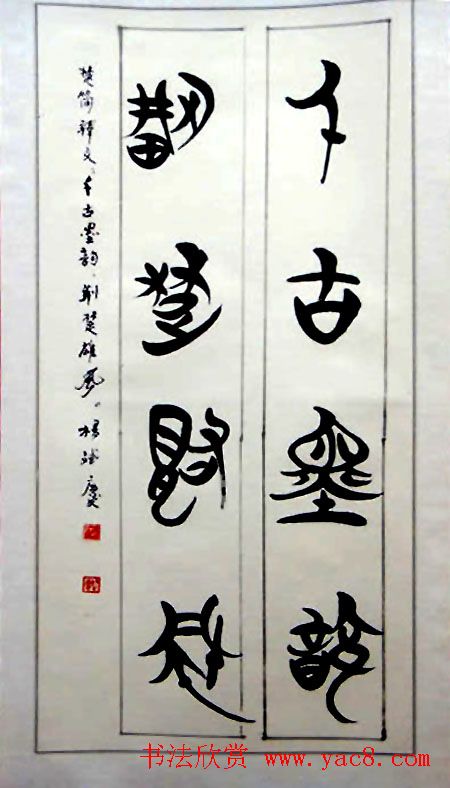 千古墨韵
荆楚雄风
楚简释文：千古墨韵，荆楚雄风。杨
书法欣赏 www.yac8.com